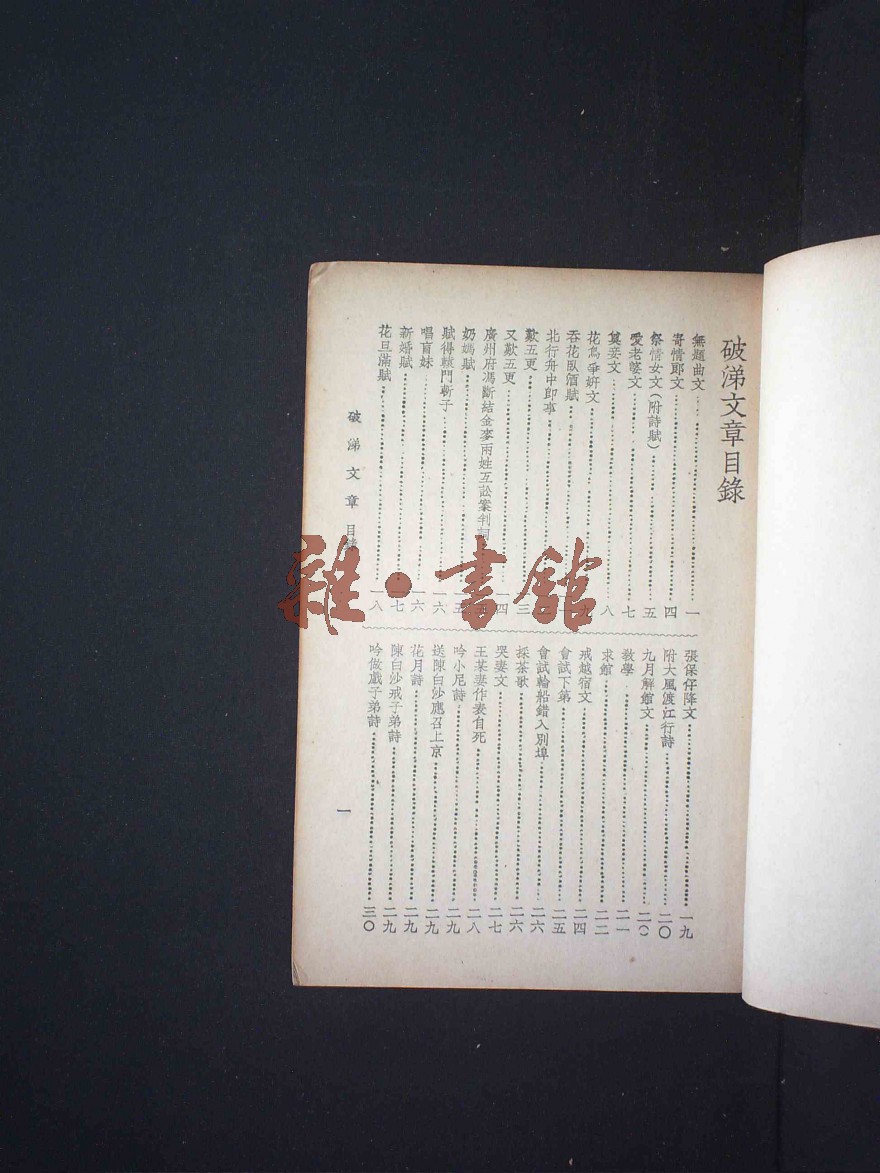 破涕文章目錄
無題曲文 一
寄情郎文 四
祭情女文（附詩賦） 五
愛老婆文 七
奠妾文 八
花鳥爭妍文 九
吞花臥酒賦
北行舟中即事
歎五更 三
又歎五更 四
廣州府馮斷結金麥兩姓互訟案判詞
奶媽賦 五
賦得轅門斬子 一六
唱盲妹 一六
新婚賦 一七
花旦滿賦 一八
張保仔降文 一九
附大風渡江行詩 二〇
九月解館文 二〇
教學 二一
求館 二二
戒越宿文 二四
會試下第 二五
會試輪船錯入別埠 二六
採茶歌 二六
哭妻文 二七
王某妻作妻自死 二八
吟小尼詩 二九
送陳白沙應召上京 二九
花月詩 二九
陳白沙戒子弟詩 二九
吟做戲子弟詩 三〇
破涕文章 目錄
一
雜·書館